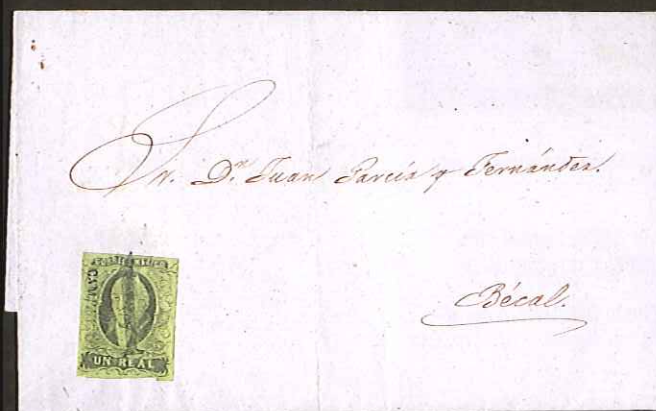 Sr. Dn. Juan García y Fernández.
Bécal.
CORREOS MEJICO
UN REAL